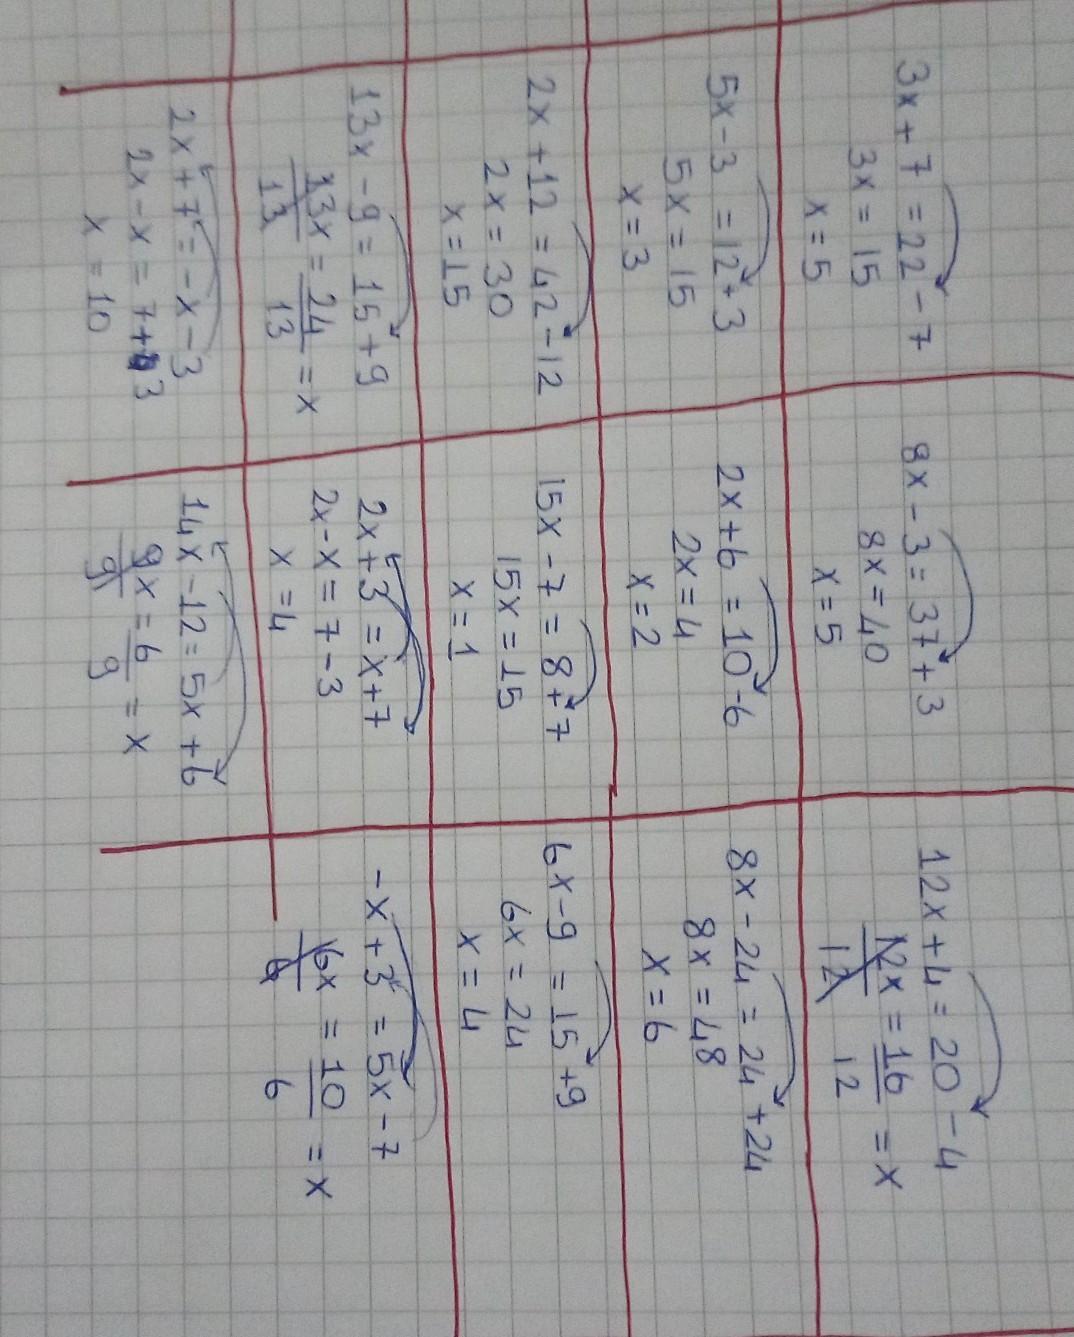 3x + 7 = 22 - 7
3x = 15
x = 5
8x - 3 = 37 + 3
8x = 40
x = 5
12x + 4 = 20 - 4
12x = 16 = x
12 12
5x - 3 = 12 + 3
5x = 15
x = 3
2x + 6 = 10 - 6
2x = 4
x = 2
8x - 24 = 24 + 24
8x = 48
x = 6
2x + 12 = 42 - 12
2x = 30
x = 15
15x - 7 = 8 + 7
15x = 15
x = 1
6x - 9 = 15 + 9
6x = 24
x = 4
13x - 9 = 15 + 9
13x = 24 = x
13 13
2x + 3 = x + 7
2x - x = 7 - 3
x = 4
-x + 3 = 5x - 7
6x = 10 = x
6 6
2x + 7 = -x - 3
2x - x = 7 + 3
x = 10
14x - 12 = 5x + 6
9x = 6 = x
9 9